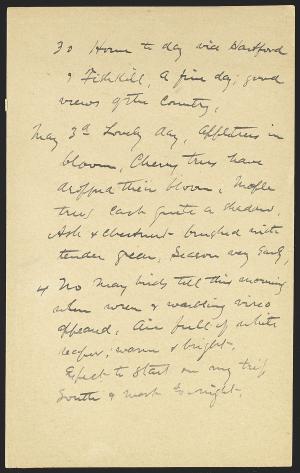 30 Home to day via Hartford
& Fishkill, A fine day; good
views of the Country,
May 3d Lovely day, Appletrees in
bloom, Cherry trees have
dropped their bloom, Maple
trees cast quite a shadow,
Ash & Chestnut brushed with
tender green, Season very early,
4 No May birds till this morning
when wren & warbling vireo
appeared, Air full of white
vapor, warm & bright.
Expect to start on my trip
South & west to-night.